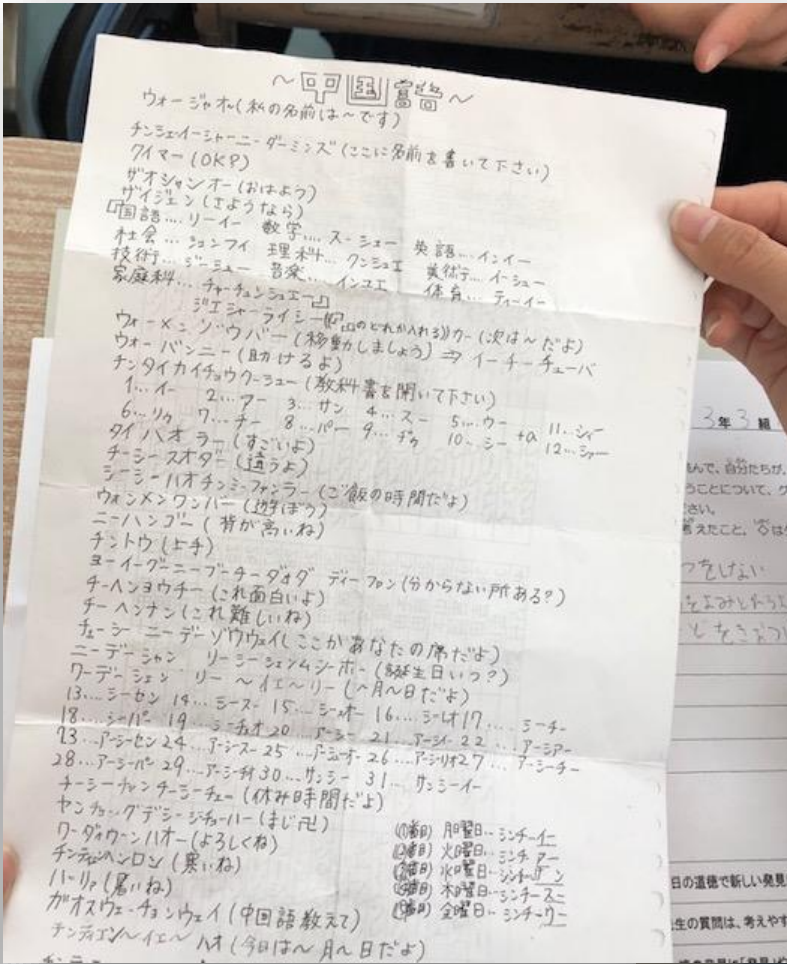 ～中国語～
ウォージャオ～(私の名前は～です)
チンシェイーシャーニーダーミンズ(ここに名前を書いて下さい)
クイマー(OK?)
ザオシャンオー(おはよう)
ザイジェン(さようなら)
『国語....リーイー 数学....スーシュー 英語...インイー
社会...シュンフイ 理科...クンシュエ 美術...イーシュー
技術...ジーシュー 音楽...インユエ 体育...ティーイー
家庭科...チャーチュンシュエー』
ジエシャーライシー(『』のどれか入れる)カー(次は～だよ)
ウォーメンゾウバー(移動しましょう)⇒イーチーチューバ
ウォーバンニー(助けるよ)
チンダイカイチョウクーシュー(教科書を開いて下さい)
1...イー 2...アー 3...サン 4...スー 5...ウー
6...リゥ 7...チー 8...パー 9...ヂゥ 10...シー +α 11...シィー
12...シァー
タイハオラー(すごいよ)
チーシースオダー(違うよ)
シーシーハオチンミーファンラー(ご飯の時間だよ)
ウォンメンワンバー(遊ぼう)
ニーハンゴー(背が高いね)
チントウ(上手)
ヨーイーグーニーブーチーダオダ ディーフォン(分からない所ある?)
チーヘンヨウチー(これ面白いよ)
チーヘンナン(これ難しいね)
チューシーニーデーゾウウェイ(ここがあなたの席だよ)
ニーデーシャン リーシーシェンムシーホー(誕生日いつ?)
ワーデーシェン リー～イエ～リー(～月～日だよ)
13...シーセン 14...シースー 15...シーウー 16...シーレオ 17...シーチー
18...シーパー 19...シーチォオ 20 アーシー 21...アーシイー 22...アーシアー
23...アーシーセン 24...アーシースー 25 ...アーシーオー 26...アーシーリオ 27...アーシーチー
28...アーシーパー 29...アーシーチオ 30...サンシー 31...サンシーイー
チーシーチャンチーシーチュー(休み時間だよ)
ヤンチョングデシージチューハー(まじ卍)
ワーダォウーンハオー(よろしくね)
チンティエンヘンロン(寒いね)
ハーリァ(暑いね)
ガオスウェーチョンウェイ(中国語教えて)
チンティエン～イエ～ハオ(今日は～月～日だよ)
(1番目) 月曜日...シンチーイー
(2番目) 火曜日...シンチーアー
(3番目) 水曜日...シンチーサン
(4番目) 木曜日...シンチースー
(5番目) 金曜日...シンチーウー
3年3組
自分たちが、
うことについて、グ
さい。
考えたこと、
つをしない
をよみとろう
日の道徳で新しい発見
生の質問は、考えやす